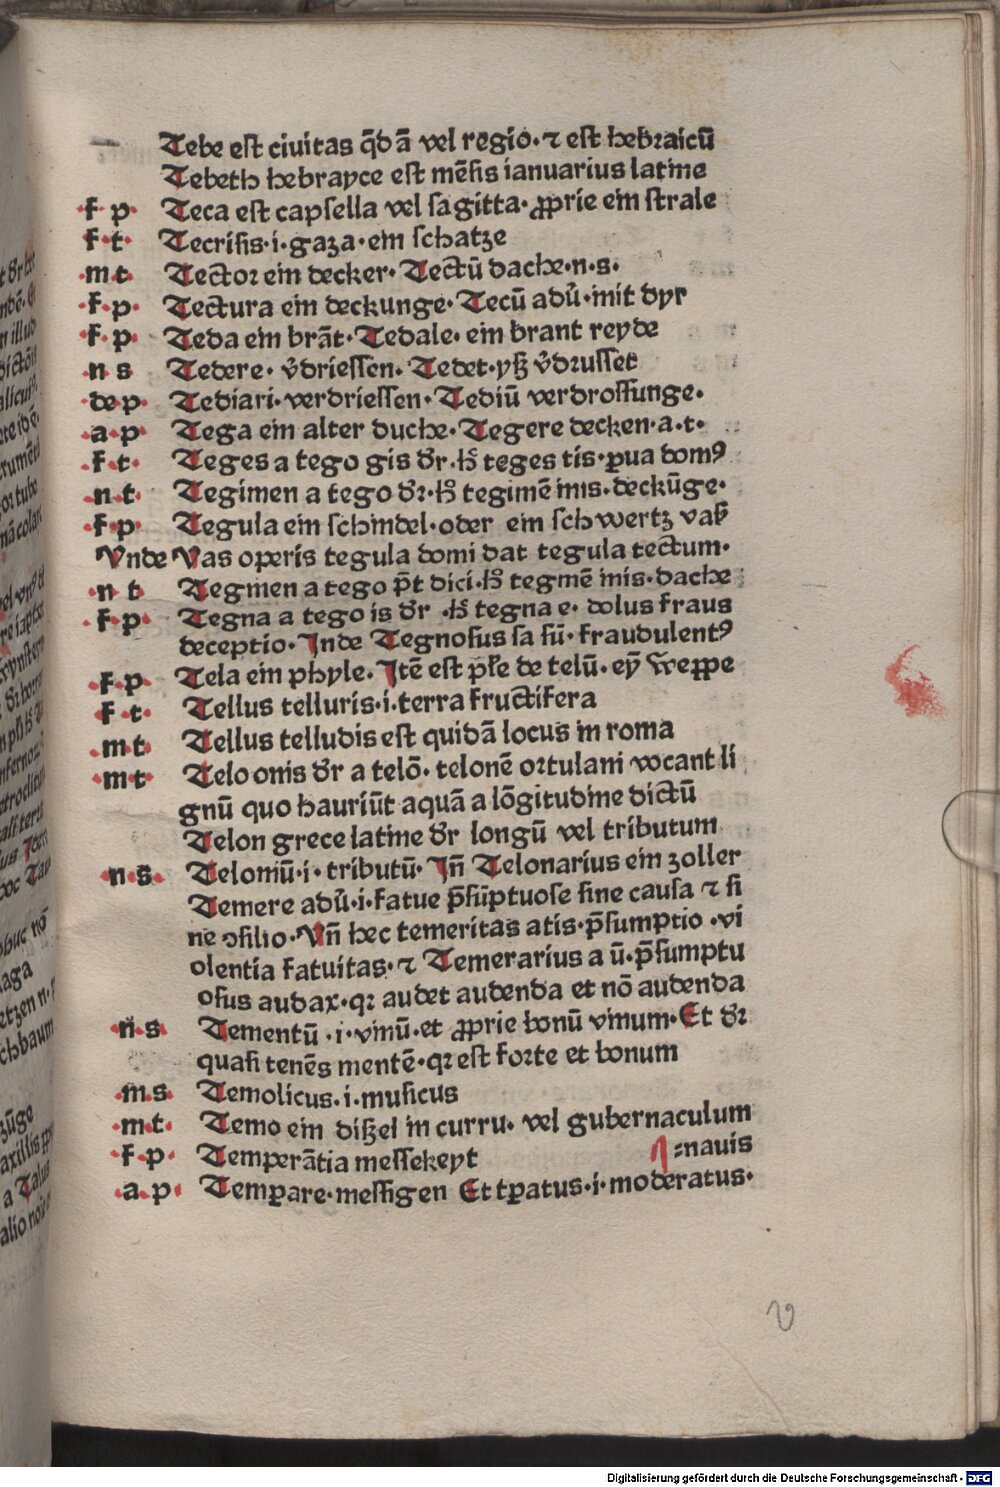 Tebe est ciuitas q̄dā vel regio· ⁊ est hebraicū
Tebeth hebrayce est mēsis ianuarius latine
·f·p· Teca est capsella vel sagitta· ꝓprie ein strale
f·t· Tecrisis·i·gaza·ein schatze
·m t· Tector ein decker· Tectū dache·n·s·
·f·p· Tectura ein deckunge· Tecū adū̓·mit dyr
·f·p· Teda ein brāt· Tedale·ein brant reyde
·n s Tedere· v̓driessen· Tedet·yſz v̓drusset
·de p· Tediari·verdriessen· Tediū verdrossunge·
·a·p· Tega ein alter duche· Tegere decken·a·t·
·f·t· Teges a tego gis dr̄·h̄ teges tis·ꝑua domꝰ
·n·t· Tegimen a tego dr̄·h̄ tegimē inis·deckūge·
·f·p· Tegula ein schindel·oder ein schwertz vaſz
Vnde Vas operis tegula domi dat tegula tectum·
·n·t· Tegmen a tego p̄t dici·h̄ tegmē inis·dache
·f·p· Tegna a tego is dr̄ ·h̄ tegna e· dolus fraus
deceptio·Inde Tegnosus sa sū·fraudulentꝰ
·f·p· Tela ein phyle·Itē est pl̄e de telū·ey̅ weppe
f t· Tellus telluris·i·terra fructifera
·m t· Tellus telludis est quidā locus in roma
·m t· Telo onis dr̄ a telō·telonē ortulani vocant li
gnū quo hauriūt aquā a lōgitudine dictū
Telon grece latine dr̄ longū vel tributum
·n·s· Teloniū·i·tributū·Iñ Telonarius ein zoller
Temere adū̓·i·fatue p̄sūptuose sine causa ⁊ si
ne ↄsilio·Vñ hec temeritas atis·p̄sumptio·vi
olentia fatuitas·⁊ Temerarius a ū·p̄sumptu
osus audax·qꝛ audet audenda et nō audenda
·n·s· Tementū ·i·vinū·et ꝓprie bonū vinum·Et dr̄
quasi tenēs mentē·qꝛ est forte et bonum
·m·s· Temolicus·i·musicus
·m·t· Temo ein diſzel in curru· vel gubernaculum
·f·p· Temperātia messekeyt ¶ =nauis
·a·p· Temꝑare·messigen Et tꝑatus·i·moderatus·
v
Digitalisierung gefördert durch die Deutsche Forschungsgemeinschaft - DFG